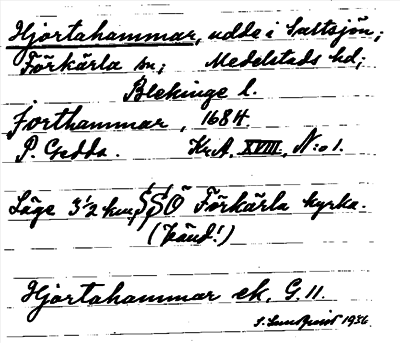 Hjortahammar, udde i Saltsjön;
Förkärla sn; Medelstads hd;
Blekinge l.
Jorthammar, 1684
P. Gedda. Kr.A. XVIII, N:o 1.
Läge 3 1/2 km SSÖ Förkärla kyrka.
(känd!)
Hjortahammar ek. G. 11.
S. Lundqvist 1936